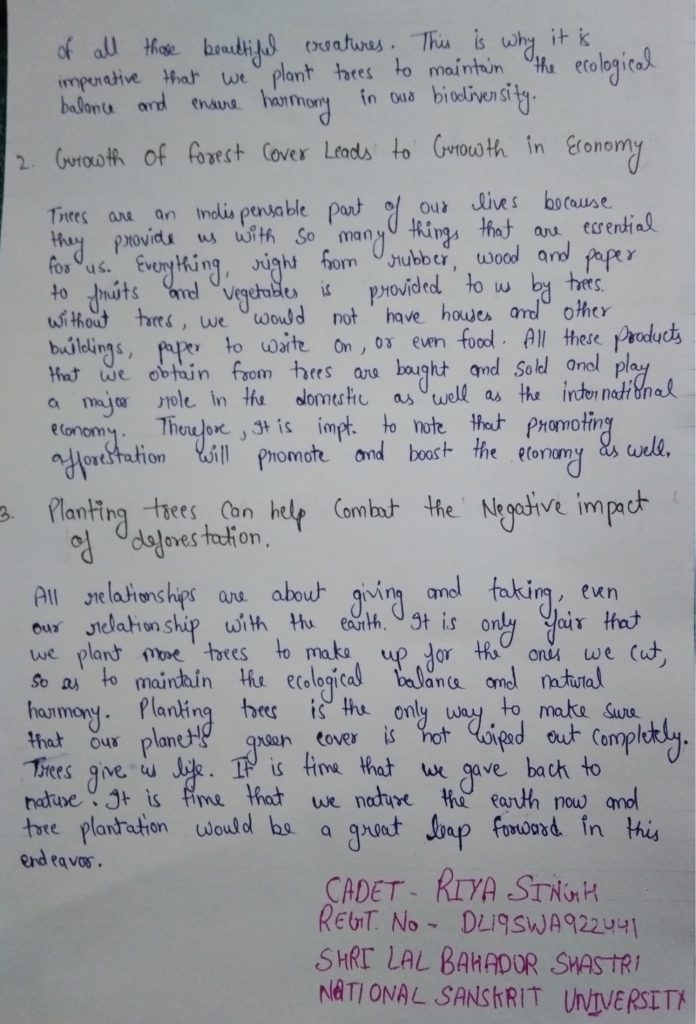 of all those beautiful creatures. This is why it is
imperative that we plant trees to maintain the ecological
balance and ensure harmony in our biodiversity.
2. Growth of forest Cover Leads to Growth in Economy
Trees are an indispensable part of our lives because
they provide us with so many things that are essential
for us. Everything, right from rubber, wood and paper
to fruits and vegetables is provided to us by trees.
without trees, we would not have houses and other
buildings, paper to write on, or even food. All these products
that we obtain from trees are bought and sold and play
a major role in the domestic as well as the international
economy. Therefore, It is impt. to note that promoting
afforestation will promote and boost the economy as well.
3. Planting trees Can help Combat the Negative impact
of deforestation.
All relationships are about giving and taking, even
our relationship with the earth. It is only fair that
we plant more trees to make up for the ones we cut,
so as to maintain the ecological balance and natural
harmony. Planting trees is the only way to make sure
that our planet's green cover is not wiped out completely.
Trees give us life. It is time that we gave back to
nature. It is time that we nature the earth now and
tree plantation would be a great leap forward in this
endeavor.
CADET - RIYA SINGH
REGT. No - DL19SWA922441
SHRI LAL BAHADUR SHASTRI
NATIONAL SANSKRIT UNIVERSITY